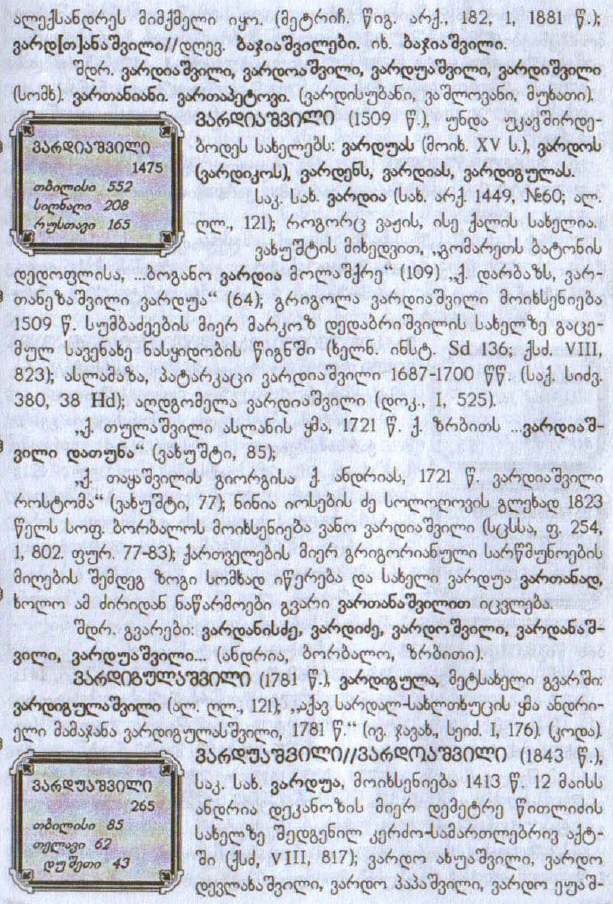 ალექსანდრეს მიმქმელი იყო. (მეტრიჩ. წიგ. არქ., 182, 1, 1881 წ.);
ვარდ[თ]ანაშვილი//დღევ. ბაჯიაშვილები. იხ. ბაჯიაშვილი.
შდრ. ვარდიაშვილი, ვარდოაშვილი, ვარდუაშვილი, ვარდიშვილი
(სომხ). ვართანიანი. ვართაპეტოვი. (ვარდისუბანი, ვაშლოვანი, მუხათი).
ვარდიაშვილი
1475
თბილისი 552
სიღნაღი 208
რუსთავი 165
ვარდიაშვილი (1509 წ.), უნდა უკავშირდე-
ბოდეს სახელებს: ვარდუას (მოიხ. XV ს.), ვარდოს
(ვარდიკოს), ვარდენს, ვარდიას, ვარდიგულას.
საკ. სახ. ვარდია (სახ. არქ. 1449, №60; ალ.
ღლ., 121); როგორც ვაჟის, ისე ქალის სახელია.
ვახუშტის მიხედვით, „გომარეთს ბატონის
დედოფლისა, ...ბოგანო ვარდია მოლაშქრე“ (109) „ქ. დარბაზს, ვარ-
თანეზაშვილი ვარდუა“ (64); გრიგოლა ვარდიაშვილი მოიხსენიება
1509 წ. სუმბაძეების მიერ მარკოზ დედაბრიშვილის სახელზე გაცე-
მულ სავენახე ნასყიდობის წიგნში (ხელნ. ინსტ. Sd 136; ქსძ. VIII,
823); ასლამაზა, პატარკაცი ვარდიაშვილი 1687-1700 წწ. (საქ. სიძვ.
380, 38 Hd); აღდგომელა ვარდიაშვილი (დოკ., I, 525).
„ქ. თულაშვილი ასლანის ყმა, 1721 წ. ქ. ზრბითს ...ვარდიაშ-
ვილი დათუნა“ (ვახუშტი, 85);
„ქ. თაყაშვილის გიორგისა ქ. ანდრიას, 1721 წ. ვარდიაშვილი
როსტომა“ (ვახუშტი, 77); ნინია იოსების ძე სოლოღოვის გლეხად 1823
წელს სოფ. ბორბალოს მოიხსენიება ვანო ვარდიაშვილი (სცსსა, ფ. 254,
1, 802. ფურ. 77-83); ქართველების მიერ გრიგორიანული სარწმუნოების
მიღების შემდეგ ზოგი სომხად იწერება და სახელი ვარდუა ვართანად,
ხოლო ამ ძირიდან ნაწარმოები გვარი ვართანაშვილით იცვლება.
შდრ. გვარები: ვარდანისძე, ვარდიძე, ვარდოშვილი, ვარდანაშ-
ვილი, ვარდუაშვილი... (ანდრია, ბორბალო, ზრბითი).
ვარდიგულაშვილი (1781 წ.), ვარდიგულა, მეტსახელი გვარში:
ვარდიგულაშვილი (ალ. ღლ., 121); „აქავ სარდალ-სახლთხუცის ყმა ანდრი-
ელი მამაჯანა ვარდიგულასშვილი, 1781 წ.“ (ივ. ჯავახ, სეიძ. I, 176). (კოდა).
ვარდუაშვილი
265
თბილისი 85
თელავი 62
დუშეთი 43
ვარდუაშვილი//ვარდოაშვილი (1843 წ.),
საკ. სახ. ვარდუა, მოიხსენიება 1413 წ. 12 მაისს
ანდრია დეკანოზის მიერ დემეტრე წითლიძის
სახელზე შედგენილ კერძო-სამართლებრივ აქტ-
ში (ქსძ, VIII, 817); ვარდო ახუაშვილი, ვარდო
დევლახაშვილი, ვარდო პაპაშვილი, ვარდო ეუაშ-